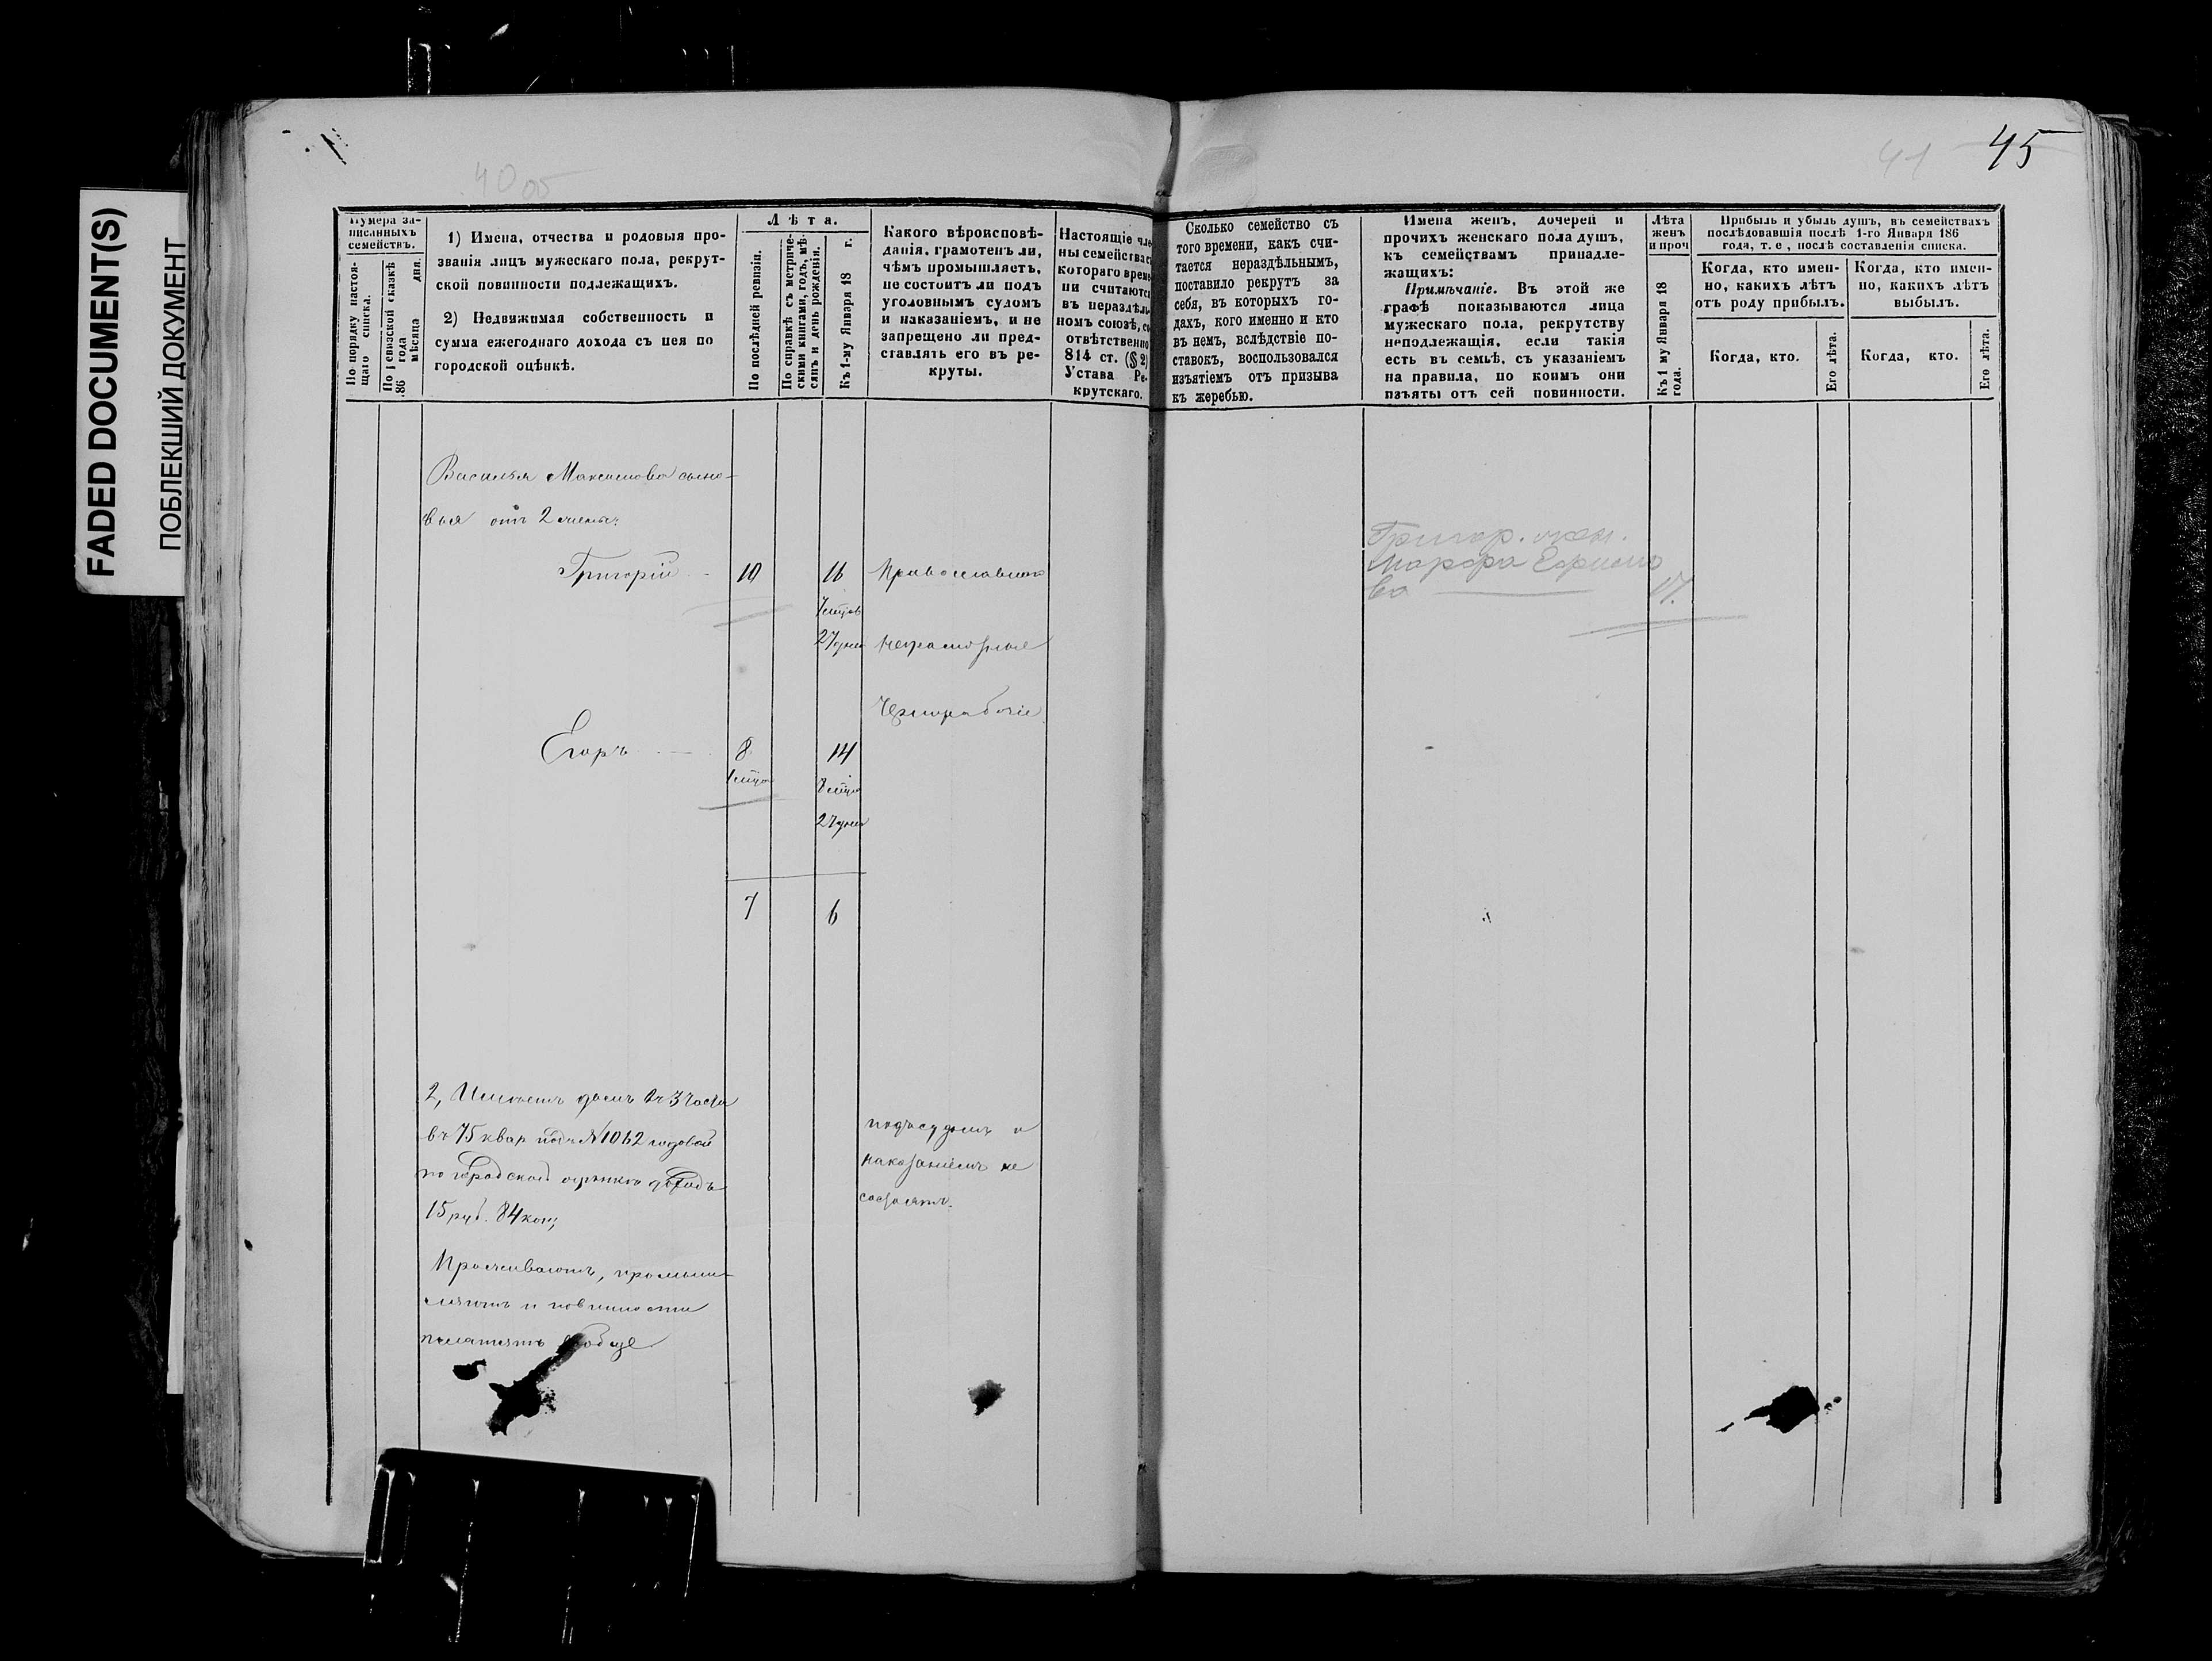 FADED DOCUMENT(S)
ПОБЛЕКШИЙ ДОКУМЕНТ
45
41
Нумера за-
писанныхъ
семействъ.
По порядку настоя-
щаго списка.
По ревизской сказкѣ
186 года мѣсяца дня.
1) Имена, отчества и родовыя про-
званія лицъ мужескаго пола, рекрут-
ской повинности подлежащихъ.
2) Недвижимая собственность и
сумма ежегоднаго дохода съ нея по
городской оцѣнкѣ.
Лѣта.
По послѣдней ревизіи.
По справкѣ съ метриче-
скими книгами, годъ, мѣ-
сяцъ и день рожденія.
Къ 1-му Января 18 г.
Какого вѣроисповѣ-
данія, грамотенъ ли,
чѣмъ промышляетъ,
не состоитъ ли подъ
уголовнымъ судомъ
и наказаніемъ, и не
запрещено ли пред-
ставлять его въ ре-
круты.
Настоящіе чле-
ны семейства съ
котораго време-
ни считаются
въ нераздѣль-
номъ союзѣ, со-
отвѣтственно
814 ст. (§ 2)
Устава Ре-
крутскаго.
Сколько семейство съ
того времени, какъ счи-
тается нераздѣльнымъ,
поставило рекрутъ за
себя, въ которыхъ го-
дахъ, кого именно и кто
въ немъ, вслѣдствіе по-
ставокъ, воспользовался
изъятіемъ отъ призыва
къ жеребью.
Имена женъ, дочерей и
прочихъ женскаго пола душъ,
къ семействамъ принадле-
жащихъ:
Примѣчаніе. Въ этой же
графѣ показываются лица
мужескаго пола, рекрутству
неподлежащія, если такія
есть въ семьѣ, съ указаніемъ
на правила, по коимъ они
изъяты отъ сей повинности.
Лѣта
женъ
и проч
Къ 1 му Января 18
года.
Прибыль и убыль душъ, въ семействахъ
послѣдовавшія послѣ 1-го Января 186
года, т. е, послѣ составленія списка.
Когда, кто имен-
но, какихъ лѣтъ
отъ роду прибылъ.
Когда, кто имен-
но, какихъ лѣтъ
выбылъ.
Когда, кто.
Его лѣта.
Когда, кто.
Его лѣта.
Василья Максимова сыно-
вья отъ 2 жены:
Григорій 10 16 Православные
7 мцов
27 дней неграмотные
Чернорабочіе
Егоръ 8 14
1 мцо 8 мцо
27 дней
7 6
Григор. жен.
Марфа Ефимо
ва 17.
2, Имеетъ домъ въ 3 части
въ 75 квар подъ № 1062 годовой
по городской оценке доходъ
15 руб. 84 коп;
Проживаютъ, промыш-
ляютъ и повинности
платятъ вообще
подъ судомъ и
наказаніемъ не
состоятъ.